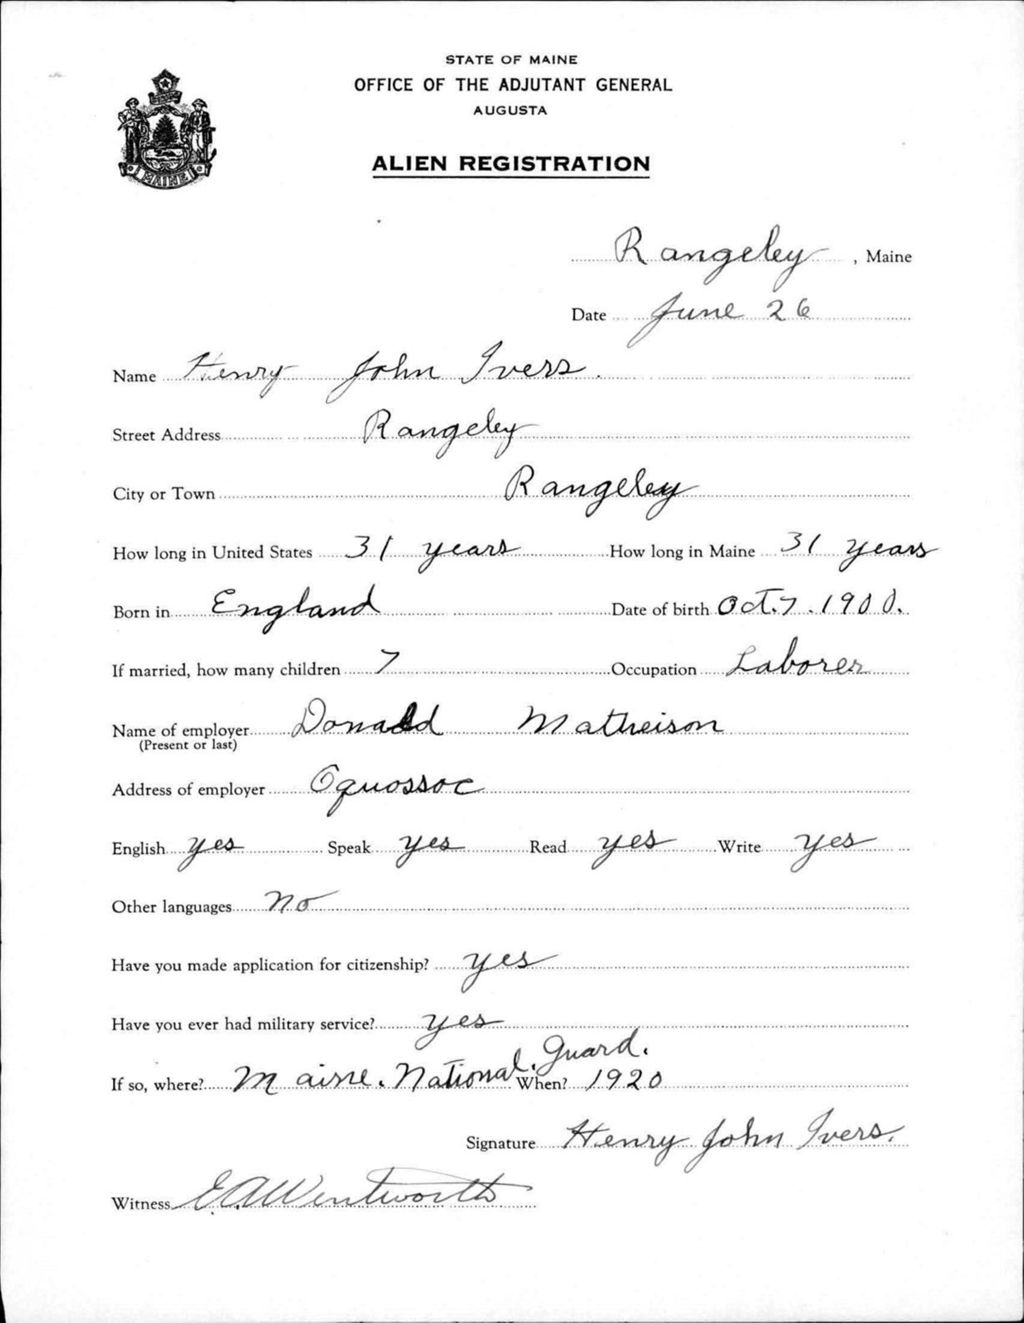 STATE OF MAINE
OFFICE OF THE ADJUTANT GENERAL
AUGUSTA
ALIEN REGISTRATION
MAINE
Rangeley, Maine
Date June 26
Name Henry John Ivers.
Street Address Rangeley
City or Town Rangeley
How long in United States 31 years How long in Maine 31 years
Born in England Date of birth Oct. 7. 1900.
If married, how many children 7 Occupation Laborer
Name of employer Donald Matheison
(Present or last)
Address of employer Oquossoc
English yes Speak yes Read yes Write yes
Other languages No
Have you made application for citizenship? yes
Have you ever had military service? yes
If so, where? Maine. National. Guard. When? 1920
Signature Henry John Ivers.
Witness E.A. Wentworth